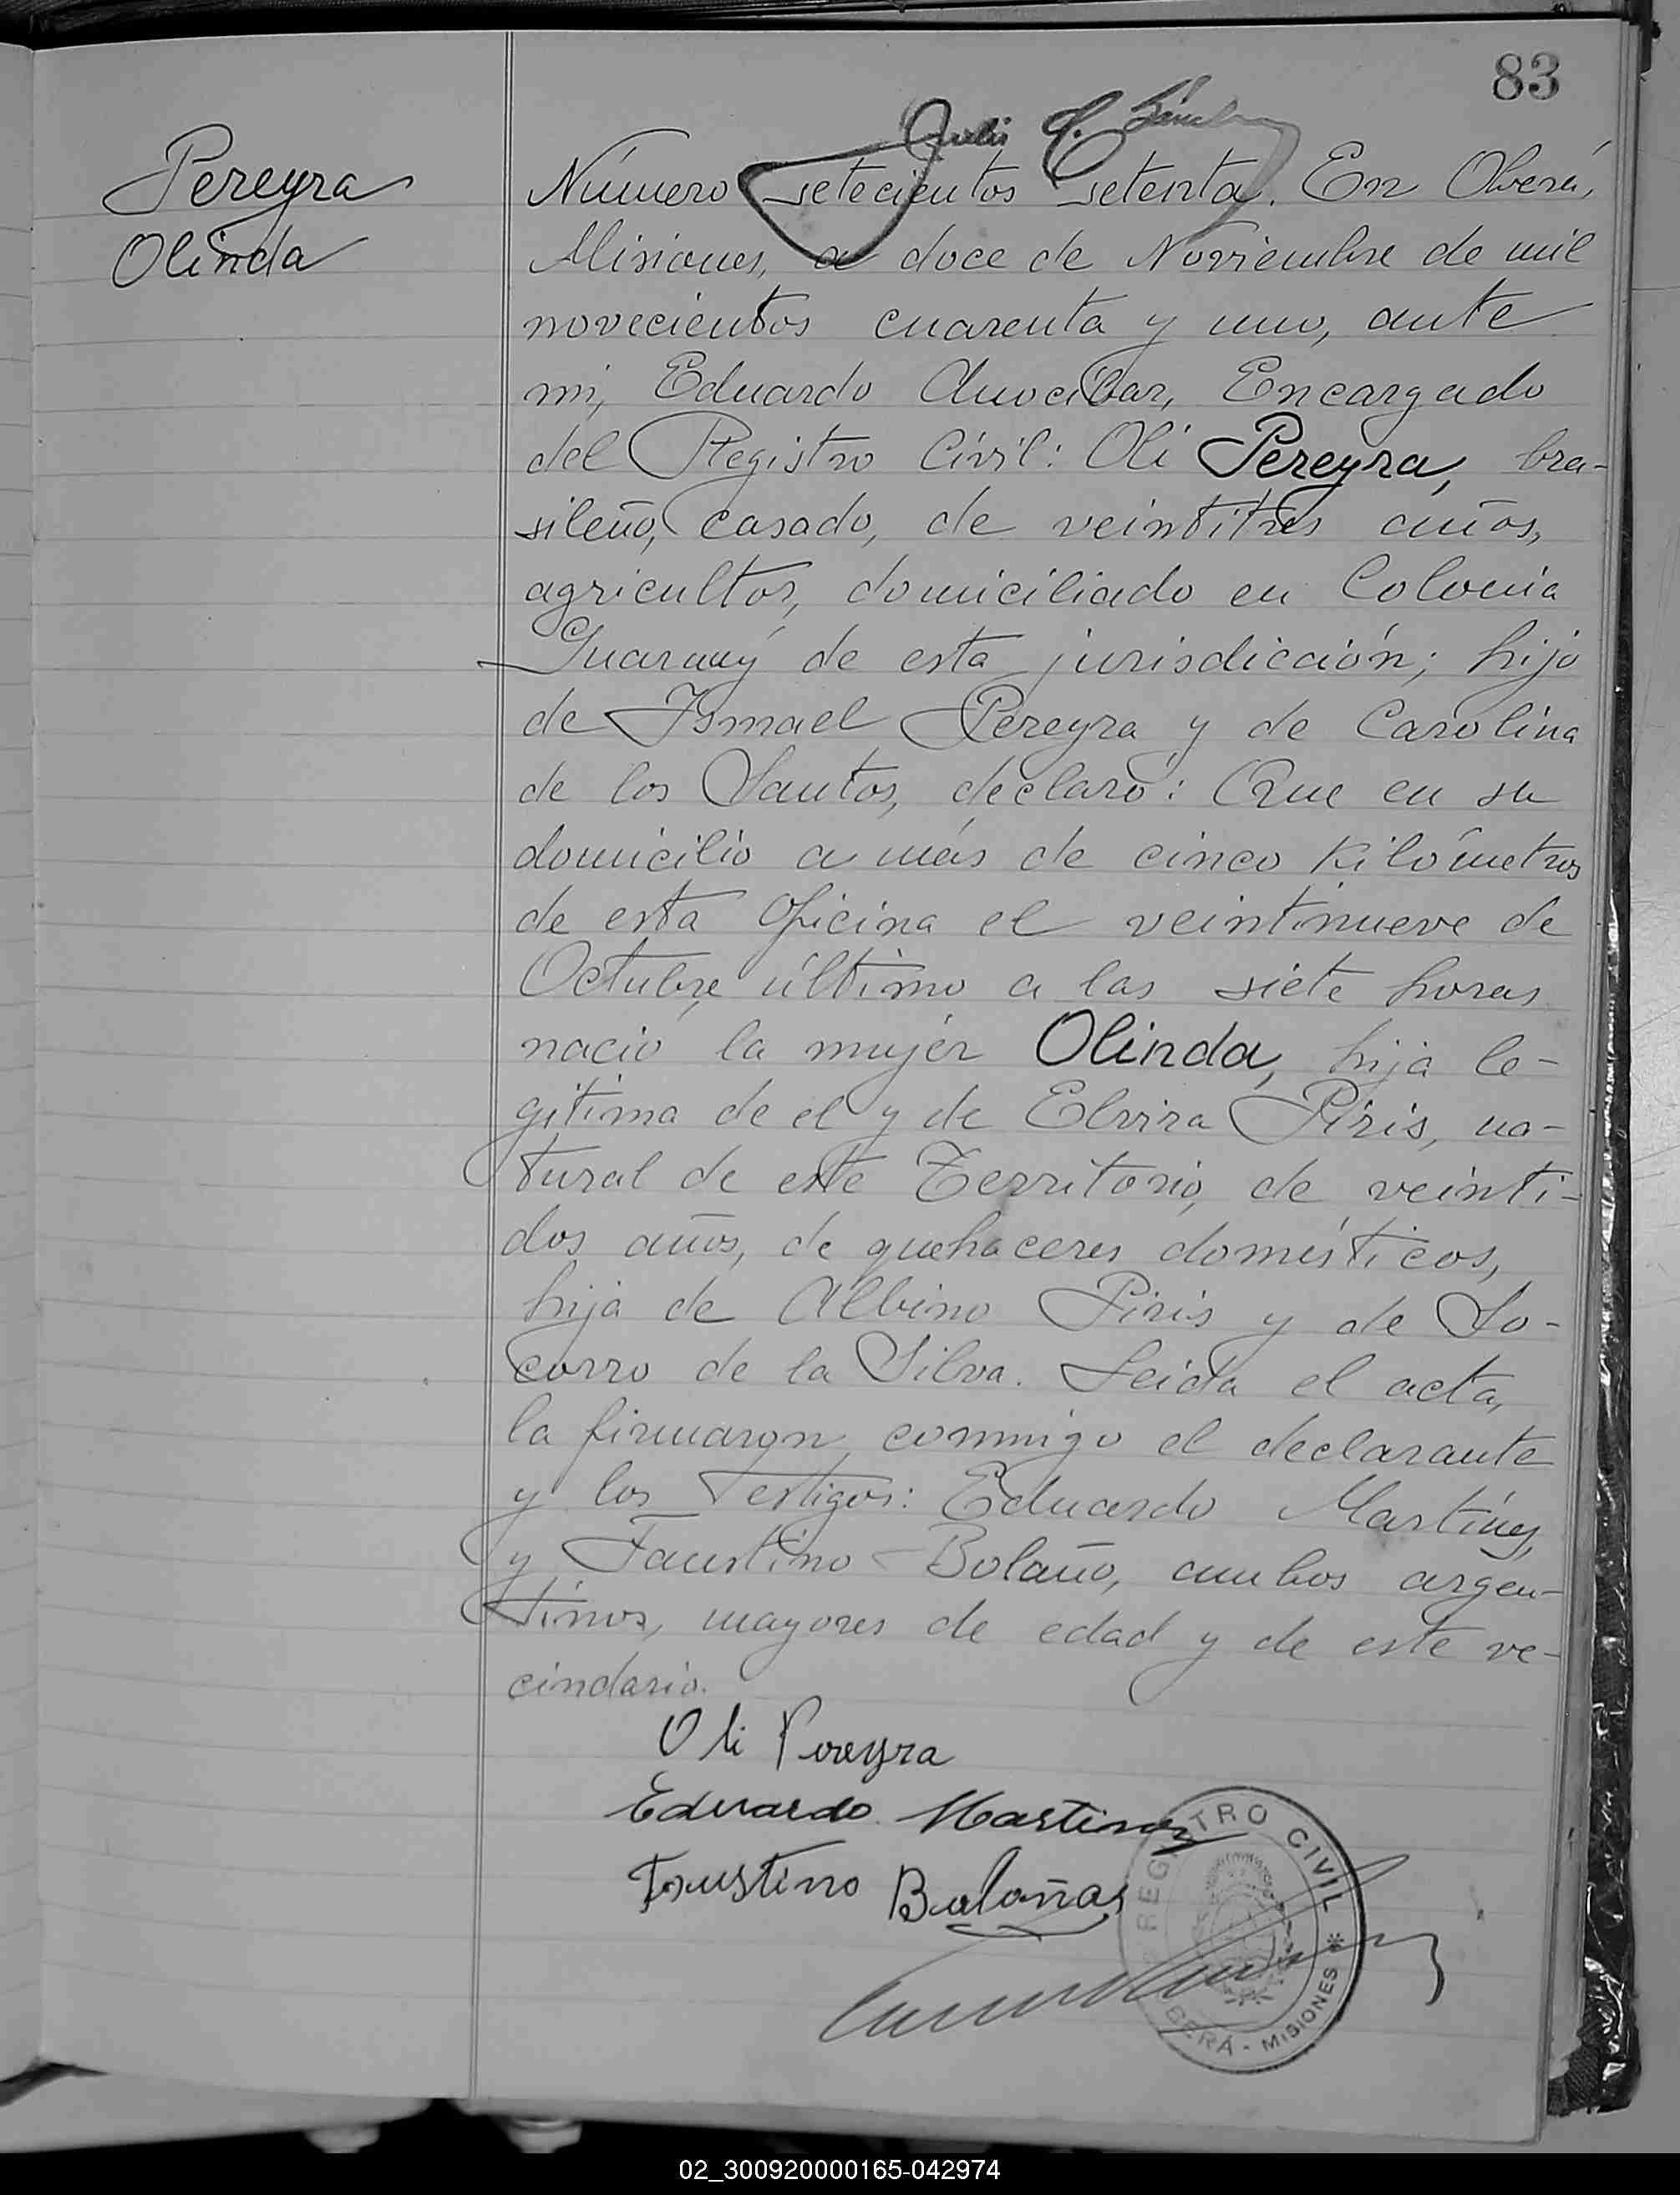 83
Pereyra
Olinda
Número setecientos setenta. En Oberá,
Misiones, a doce de Noviembre de mil
novecientos cuarenta y uno, ante
mi, Eduardo Encargado
del Registro Civil: Oli Pereyra, bra-
sileño, casado, de veintitres años,
agricultor, domiciliado en Colonia
Guarany de esta jurisdicción; hijo
de Ismael Pereyra y de Carolina
de los Santos, declaró: Que en su
domicilio a más de cinco kilómetros
de esta oficina el veintinueve de
Octubre último a las siete horas
nació la mujer Olinda, hija le-
gitima de el y de Elvira Piris, na-
tural de este Territorio, de veinti-
dos años, de quehaceres domésticos,
hija de Albino Piris y de So-
corro de la Silva. Leida el acta,
la firmaron conmigo el declarante
y los testigos: Eduardo Martínez,
y Faustino Bolaño, ambos argen-
tinos, mayores de edad y de este ve-
cindario.
Oli Pereyra
Eduardo Martinez
Faustino Bolañas
REGISTRO CIVIL * OBERÁ - MISIONES *
02_300920000165-042974